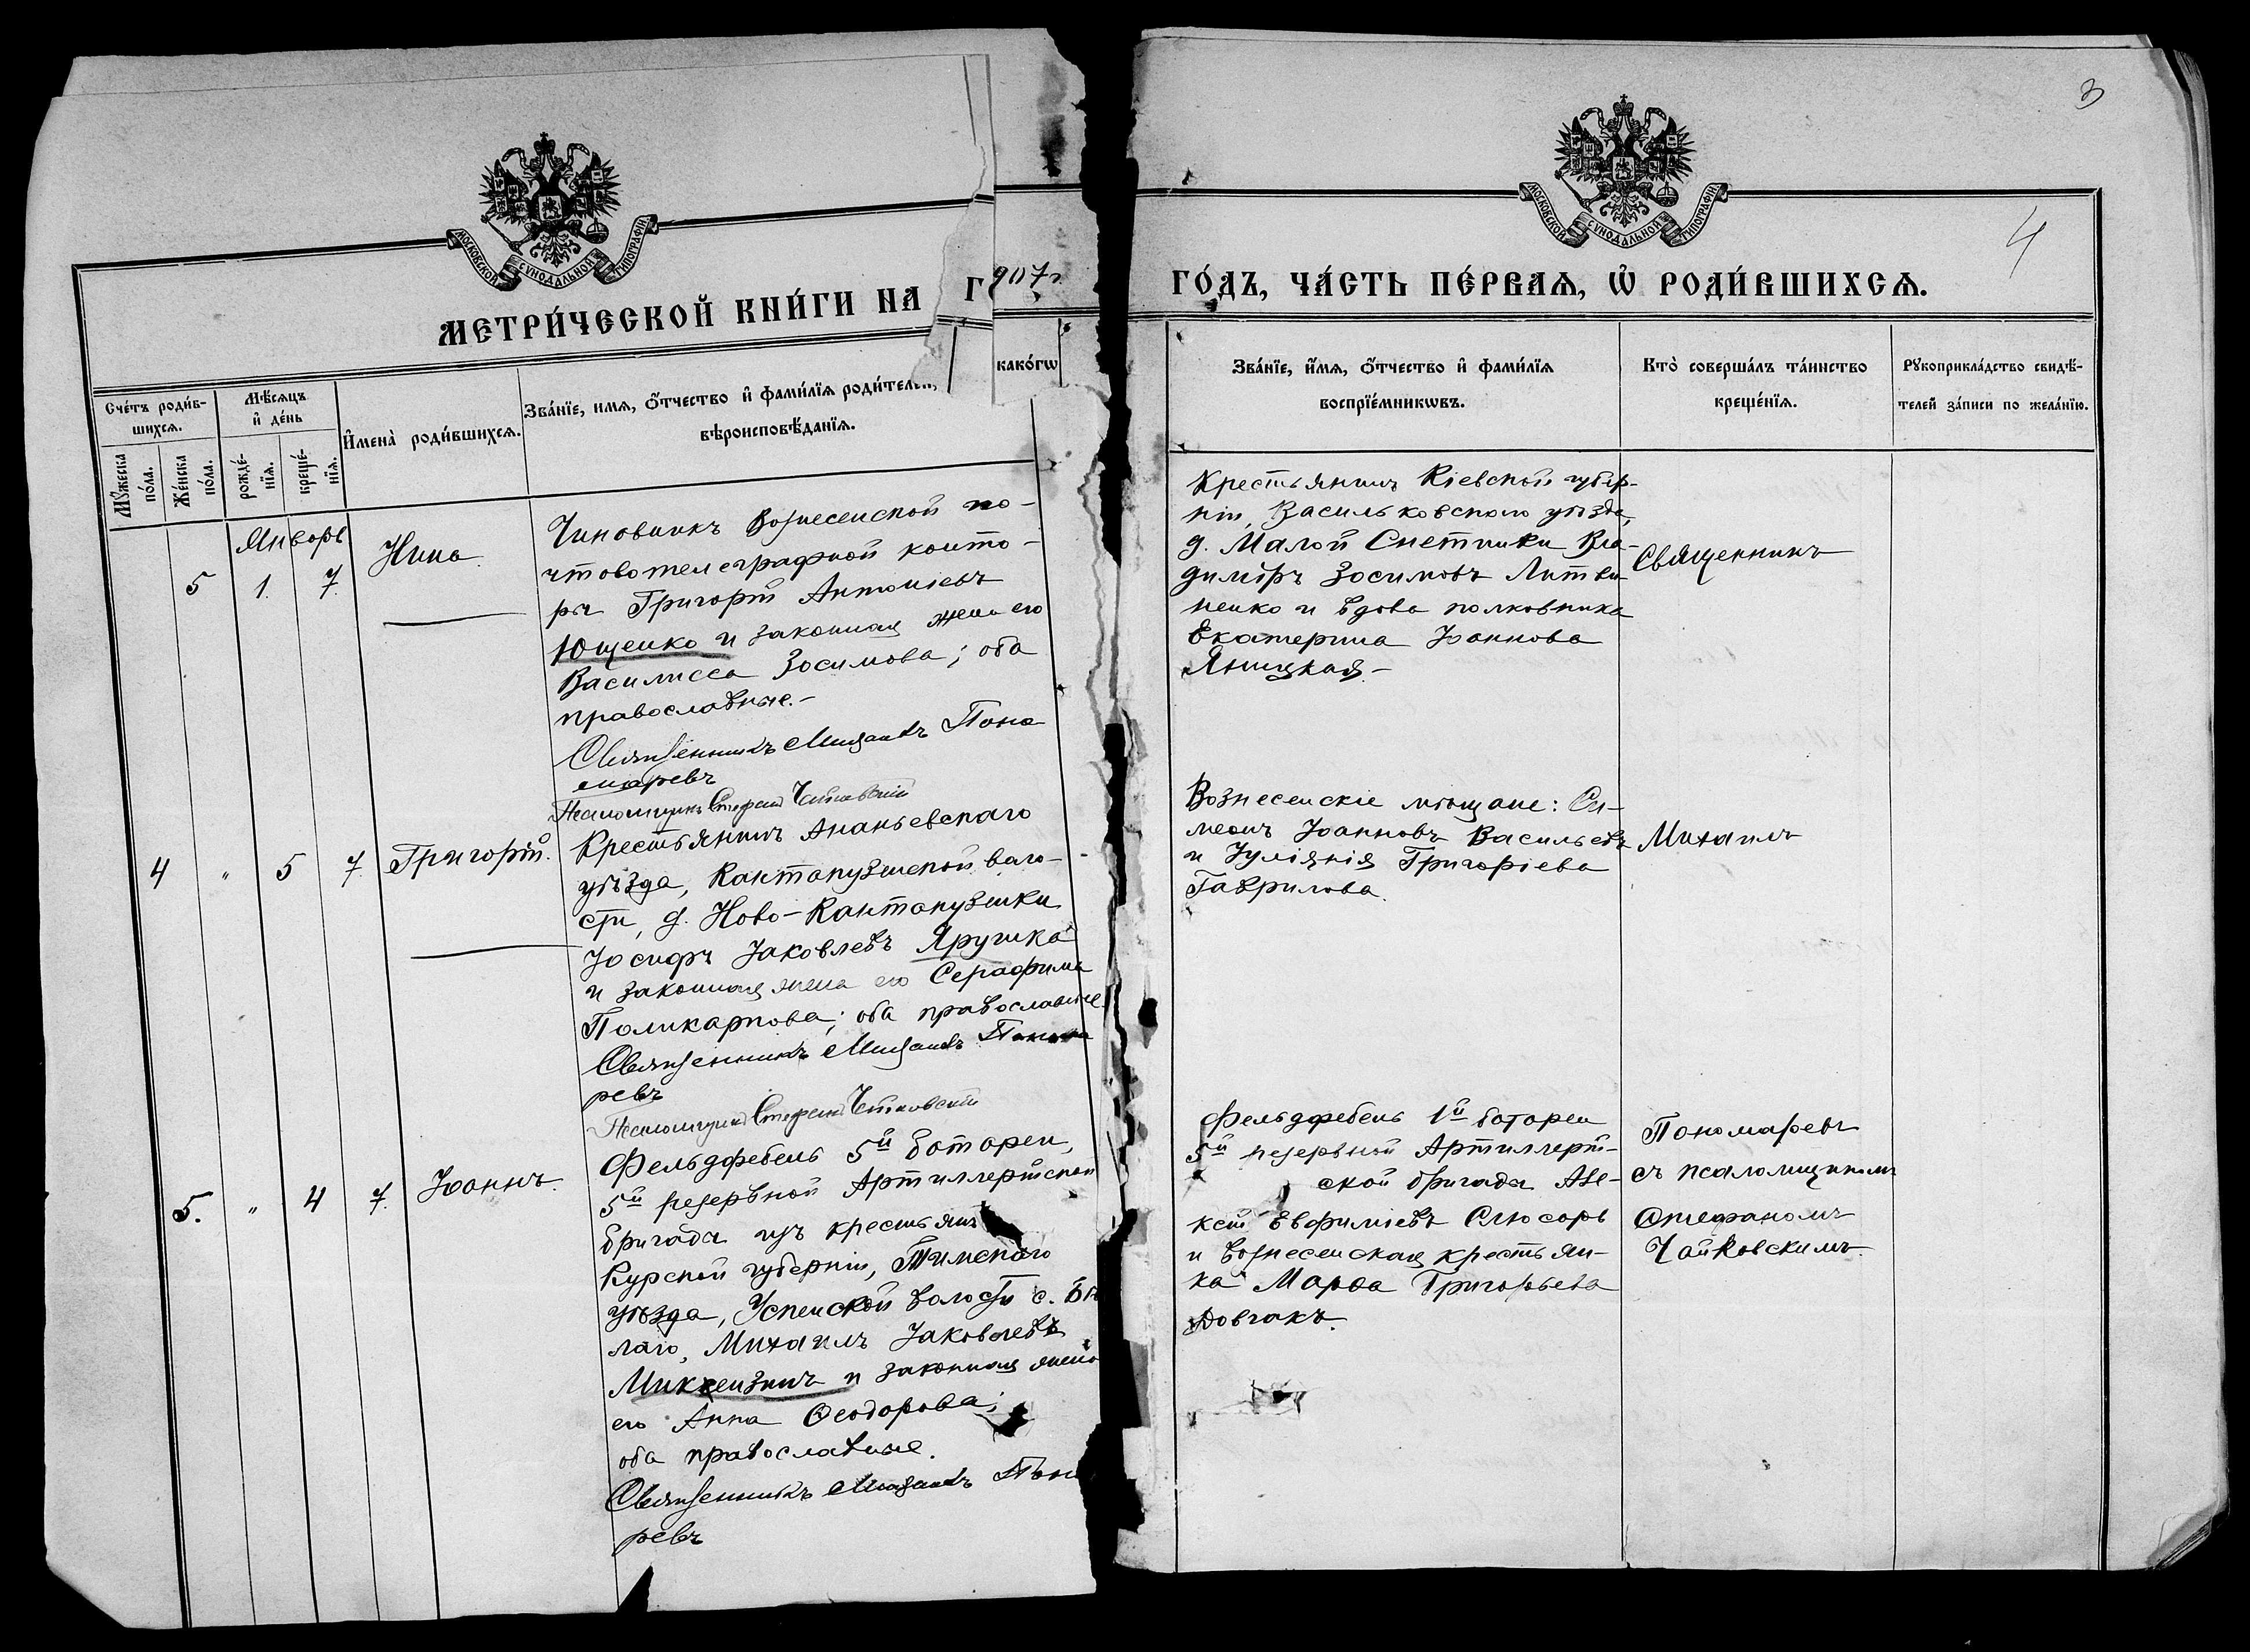 3
4
МОСКОВСКОЙ СѴНОДАЛЬНОЙ ТИПОГРАФІИ
МЕТРИ́ЧЕСКОЙ КНИ́ГИ НА
Г
907г
МОСКОВСКОЙ СѴНОДАЛЬНОЙ ТИПОГРАФІИ
ГО́ДЪ, ЧА́СТЬ ПЕ́РВАѦ, Ѡ҆ РОДИ́ВШИХСѦ.
Сче́тъ роди́в-
шихсѧ.
Мꙋ́жеска
по́ла.
Же́нска
по́ла.
Мѣ́сѧцъ
и҆ де́нь
рожде́-
нїѧ.
креще́-
нїѧ.
И҆мена̀ роди́вшихсѧ.
Зва́нїе, имѧ, ѻ҆́тчество и҆ фами́лїѧ роди́телей,
како́гѡ
вѣроисповѣ́данїѧ.
Зва́нїе, и҆́мѧ, ѻ҆́тчество и҆ фами́лїѧ
воспрїе́мникѡвъ.
Кто̀ соверша́лъ та́инство
креще́нїѧ.
Рꙋкоприкла́дство свидѣ́-
телей за́писи по жела́нїю.
Январь
5 1. 7. Нина
Чиновникъ Вознесенской по-
чтовотелеграфной конто-
ры Григорій Антоніевъ
Ющенко и законная жена его
Василисса Зосимова; оба
православные.-
Священникъ Михаилъ Поно
маревъ
Псаломщикъ Стефанъ Чайковскій
Крестьянинъ Кіевской губер-
ніи, Васильковскаго уѣзда,
д. Малой Снетинки Вла-
диміръ Зосимовъ Литви-
ненко и вдова полковника
Екатерина Іоаннова
Яницкая-
Священникъ
4 " 5 7. Григорій.
Крестьянинъ Ананьевскаго
уѣзда, Кантакузенской воло-
сти, д. Ново-Кантакузенки
Іосифъ Іаковлевъ Ярушка
и законная жена его Серафима
Поликарпова; оба православные.
Священникъ Михаилъ Понома
ревъ
Псаломщикъ Стефанъ Чайковскій
Вознесенскіе мѣщане: Си-
меонъ Іоанновъ Васильевъ
и Іуліянія Григоріева
Гаврилова.
Михаилъ
5. " 4 7. Іоаннъ.
Фельдфебель 5й батареи,
5й резервной Артиллерійской
бригады изъ крестьянъ
Курской губерніи, Тимскаго
уѣзда, Успенской волости с. Бѣ
лаго, Михаилъ Іаковлевъ
и законная жена
его Анна Ѳеодорова;
оба православные.
Священникъ Михаилъ Поно
ревъ
Фельдфебель 1й батареи
5й резервной Артиллерій-
ской бригады Але-
ксій Евфиміевъ Слюсарь
и вознесенская крестьян-
ка Марѳа Григорьева
Довгакъ.
Пономаревъ
съ псаломщикомъ
Стефаномъ
Чайковскимъ.